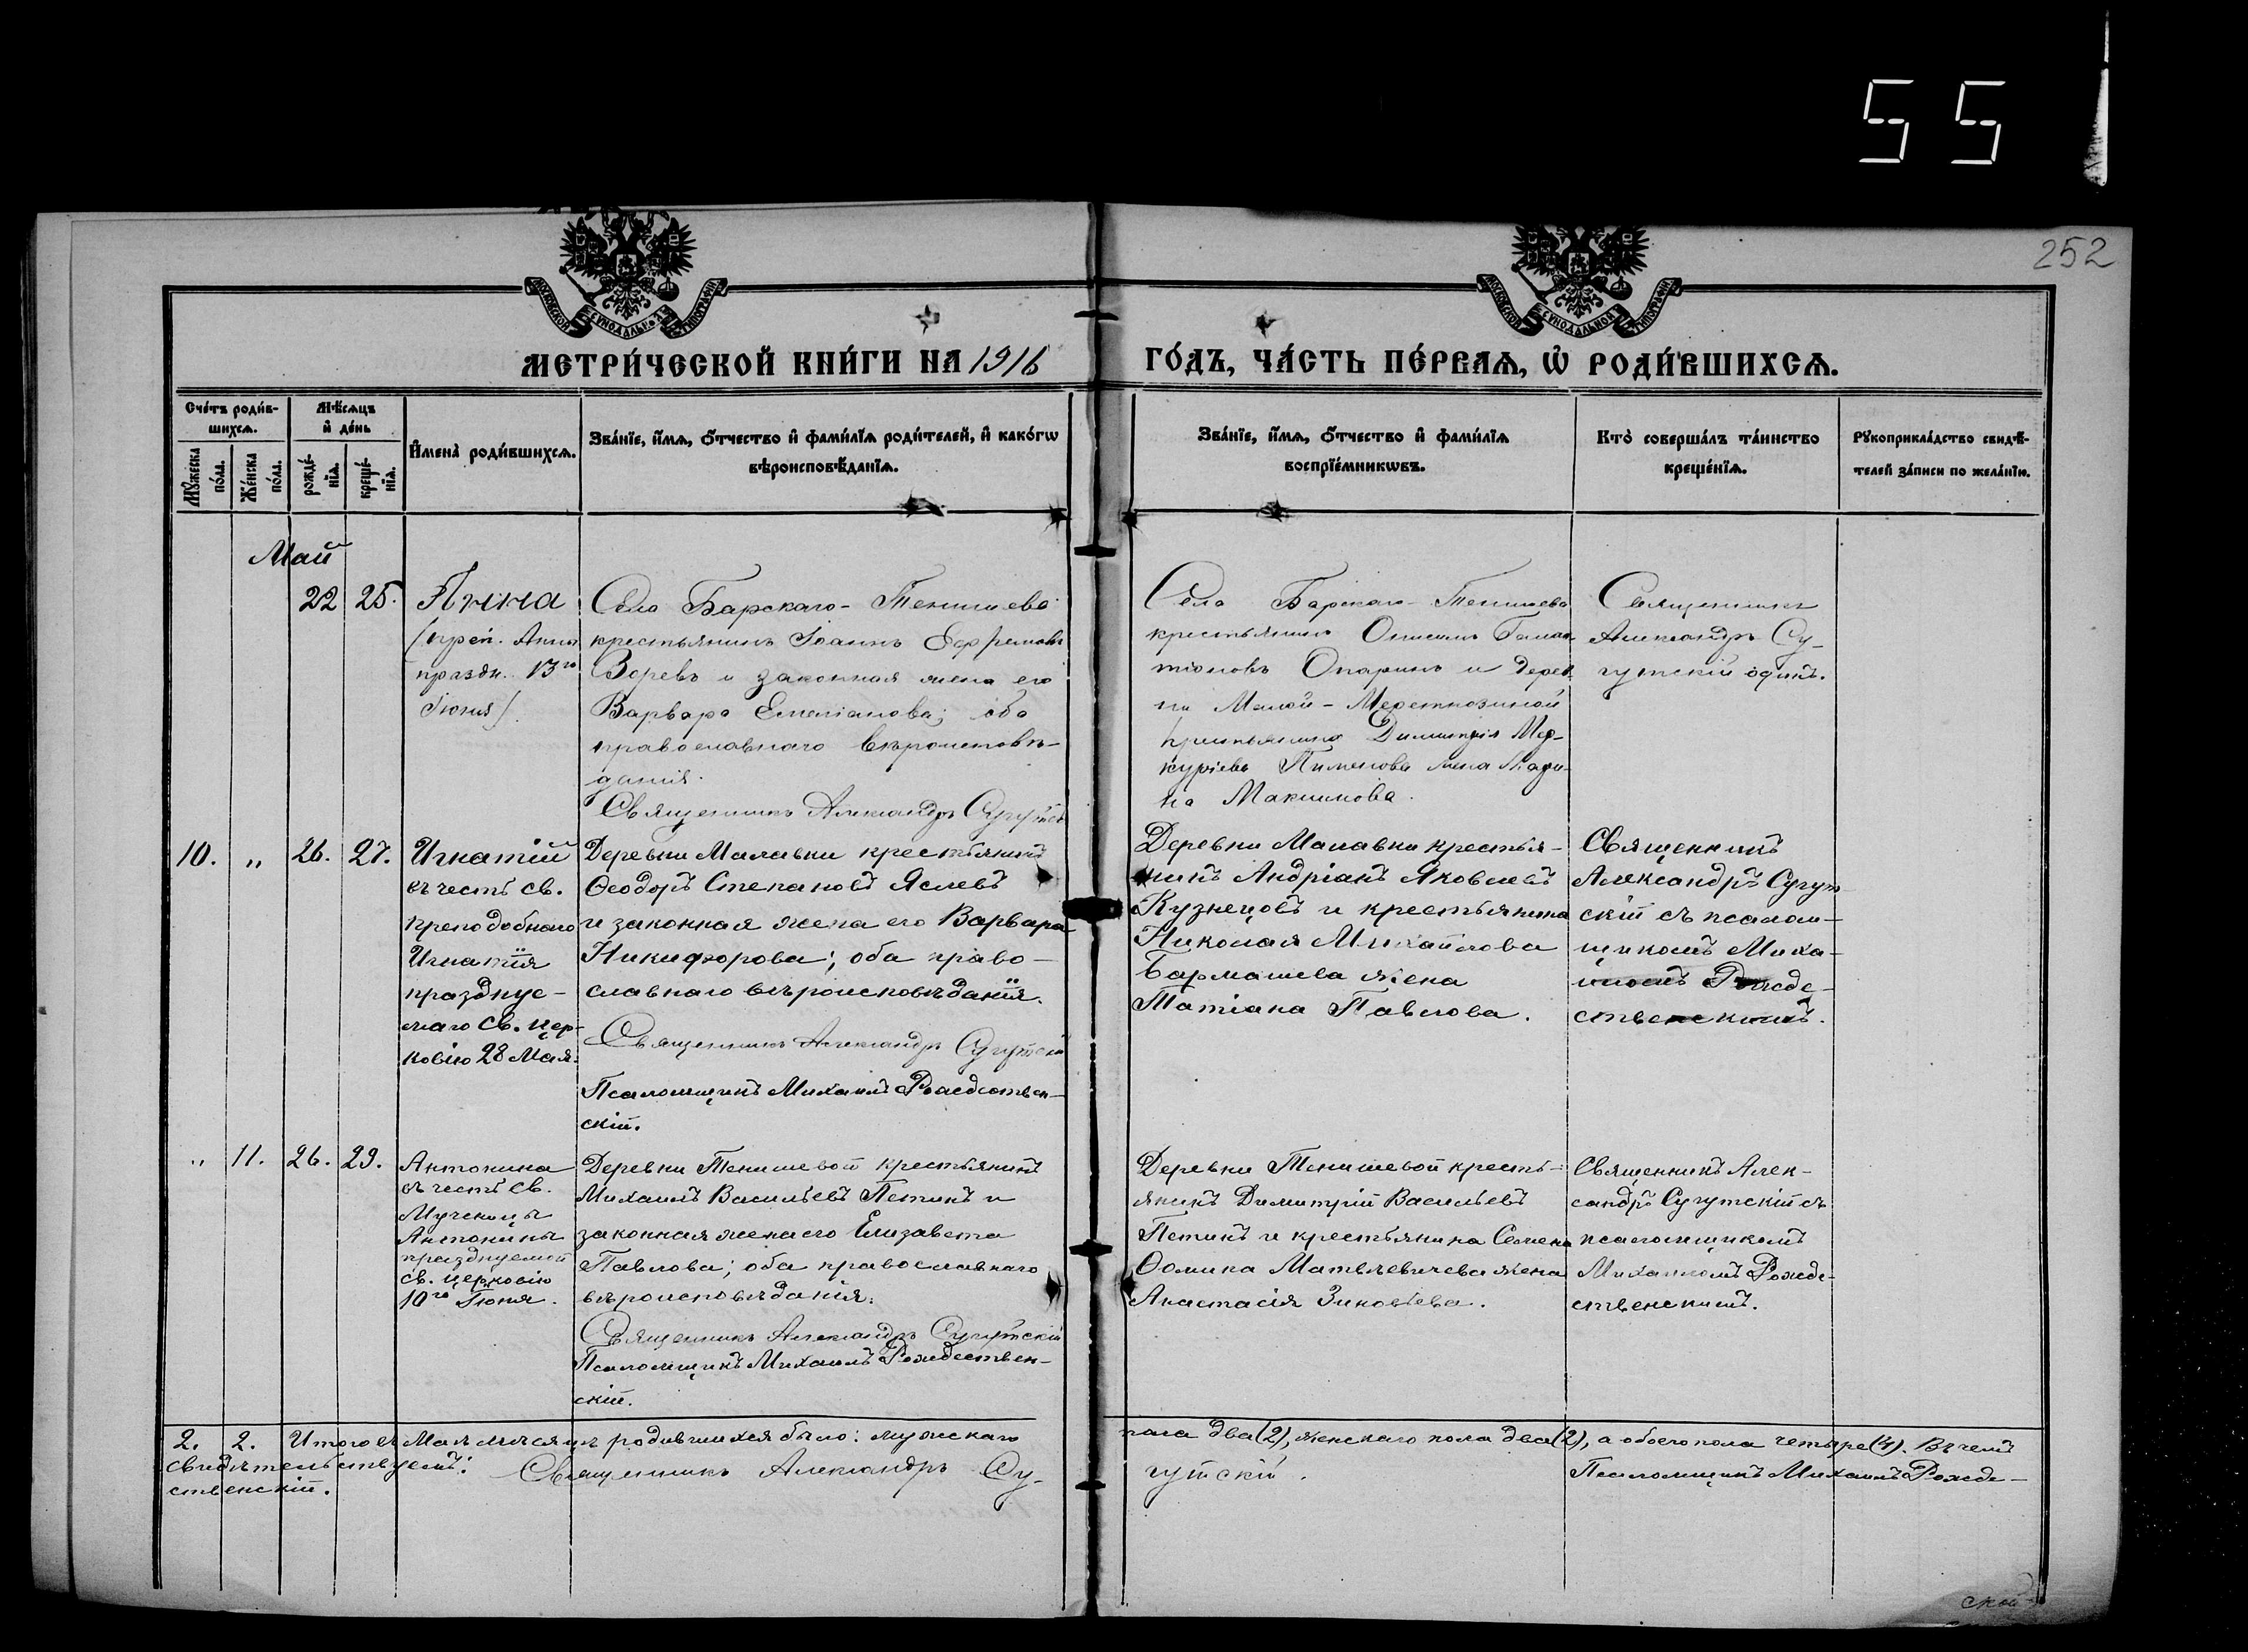 55
252
МОСКОВСКОЙ СУНОДАЛЬНОЙ ТИПОГРАФІИ
МОСКОВСКОЙ СУНОДАЛЬНОЙ ТИПОГРАФІИ
МЕТРИ́ЧЕСКОЙ КНИ́ГИ НА 1916
ГО́ДЪ, ЧА́СТЬ ПЕ́РВАѦ, Ѡ҆ РОДИ́ВШИХСѦ.
Сче́тъ роди́в-
шихсѧ.
Мꙋ́жеска
по́ла.
Же́нска
по́ла.
Мѣ́сѧцъ
и҆ де́нь
рожде́-
нїѧ.
креще́-
нїѧ.
И҆мена̀ роди́вшихсѧ.
Зва́нїе, и҆́мѧ, ѻ҆́тчество и҆ фами́лїѧ роди́телей, и҆ како́гѡ
вѣроисповѣ́данїѧ.
Зва́нїе, и҆́мѧ, ѻ҆́тчество и҆ фами́лїѧ
воспрїе́мникѡвъ.
Кто̀ соверша́лъ та́инство
креще́нїѧ.
Рꙋкоприкла́дство свидѣ́-
телей за́писи по жела́нїю.
Май
22 25.
Анна
(преп. Анны
праздн. 13го
Іюня)
Села Барскаго-Тенишева
крестьянинъ Іоаннъ Ефремовъ
Зоревъ и законная жена его
Варвара Емеліанова; оба
православнаго вѣроисповѣ-
данія.
Священникъ Александръ Сугутск
Села Барскаго-Тенишева
крестьянинъ Онисимъ
Опаринъ и дерев
ни Малой-
крестьянина Димитрія Мер-
куріевъ Пименова жена Мари-
на Максимова.
Священникъ
Александръ Су-
гутскій одинъ.
10. „ 26. 27.
Игнатій
въ честь св.
преподобнаго
Игнатія
празднуе-
маго св. цер-
ковію 28 Мая.
Деревни Малавки крестьянинъ
Ѳеодоръ Степановъ Яслевъ
и законная жена его Варвара
Никифорова; оба право-
славнаго вѣроисповѣданія.
Священникъ Александръ Сугутскій
Псаломщикъ Михаилъ Рождествен-
скій.
Деревни Малавки крестья-
нинъ Андріанъ Яковлевъ
Кузнецовъ и крестьянина
Николая Михайлова
Бармашева жена
Татіана Павлова.
Священникъ
Александръ Сугут
скій съ псалом-
щикомъ Миха-
иломъ Рожде-
ственскимъ.
„ 11. 26. 29.
Антонина
въ честь св.
Мученицы
Антонины
празднуемой
св. церковію
10го Іюня.
Деревни Тенишевой крестьянинъ
Михаилъ Васильевъ Петинъ и
законная жена его Елизавета
Павлова; оба православнаго
вѣроисповѣданія.
Священникъ Александръ Сугутскій
Псаломщикъ Михаилъ Рождествен-
скій.
Деревни Тенишевой кресть-
янинъ Димитрій Васильевъ
Петинъ и крестьянина Семена
Ѳомина Матвѣевичева жена
Анастасія Зиновьева.
Священникъ Алек-
сандръ Сугутскій съ
псаломщикомъ
Михаиломъ Рожде-
ственскимъ.
2. 2. Итого въ Маѣ мѣсяцѣ родившихся было: мужскаго
пола два (2), женскаго пола два (2), а обоего пола четыре (4). Въ чемъ
свидѣтельствуемъ: Священникъ Александръ Су-
гутскій. Псаломщикъ Михаилъ Рожде-
ственскій.
ской